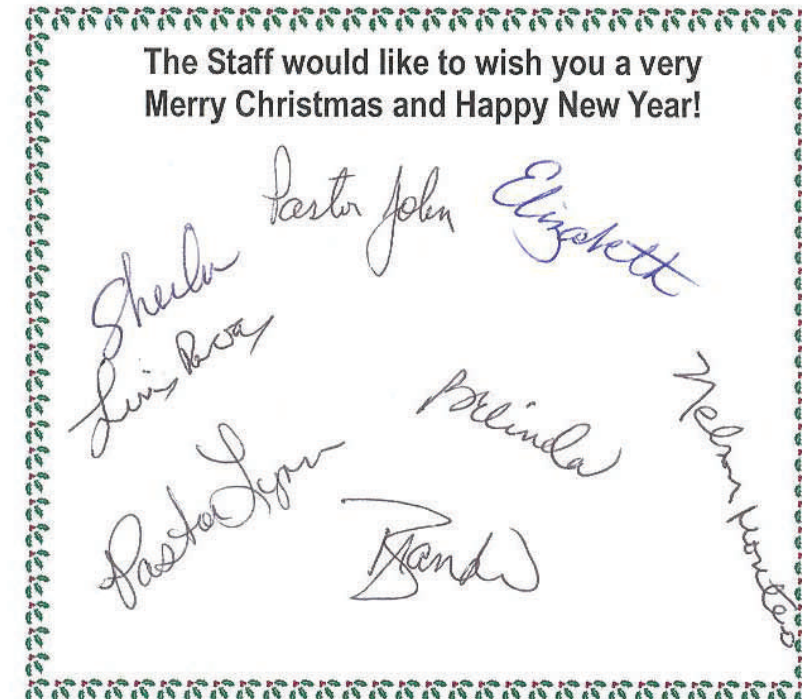 The Staff would like to wish you a very
Merry Christmas and Happy New Year!
Pastor John
Elizabeth
Sheila
Belinda
Nelson Monteiro
Pastor Lynn